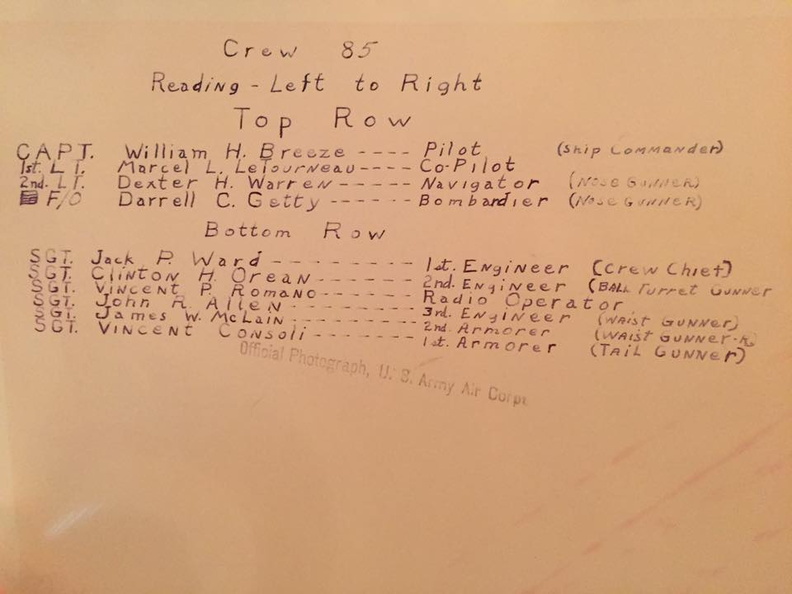 Crew 85
Reading - Left to Right
Top Row
CAPT. William H. Breeze ---- Pilot (Ship Commander)
1st. LT. Marcel L. LeTourneau ---- Co-Pilot
2nd. LT. Dexter H. Warren ----- Navigator (Nose Gunner)
F/O Darrell C. Getty ----- Bombardier (Nose Gunner)
Bottom Row
SGT. Jack P. Ward --------- 1st. Engineer (Crew Chief)
SGT. Clinton H. Orean ------- 2nd. Engineer (Ball Turret Gunner
SGT. Vincent P. Romano ------- Radio Operator
SGT. John R. Allen -------- 3rd. Engineer (Waist Gunner)
SGT. James W. McLain -------- 2nd. Armorer (Waist Gunner-R)
SGT. Vincent Consoli ------- 1st. Armorer (Tail Gunner)
Official Photograph, U. S. Army Air Corps